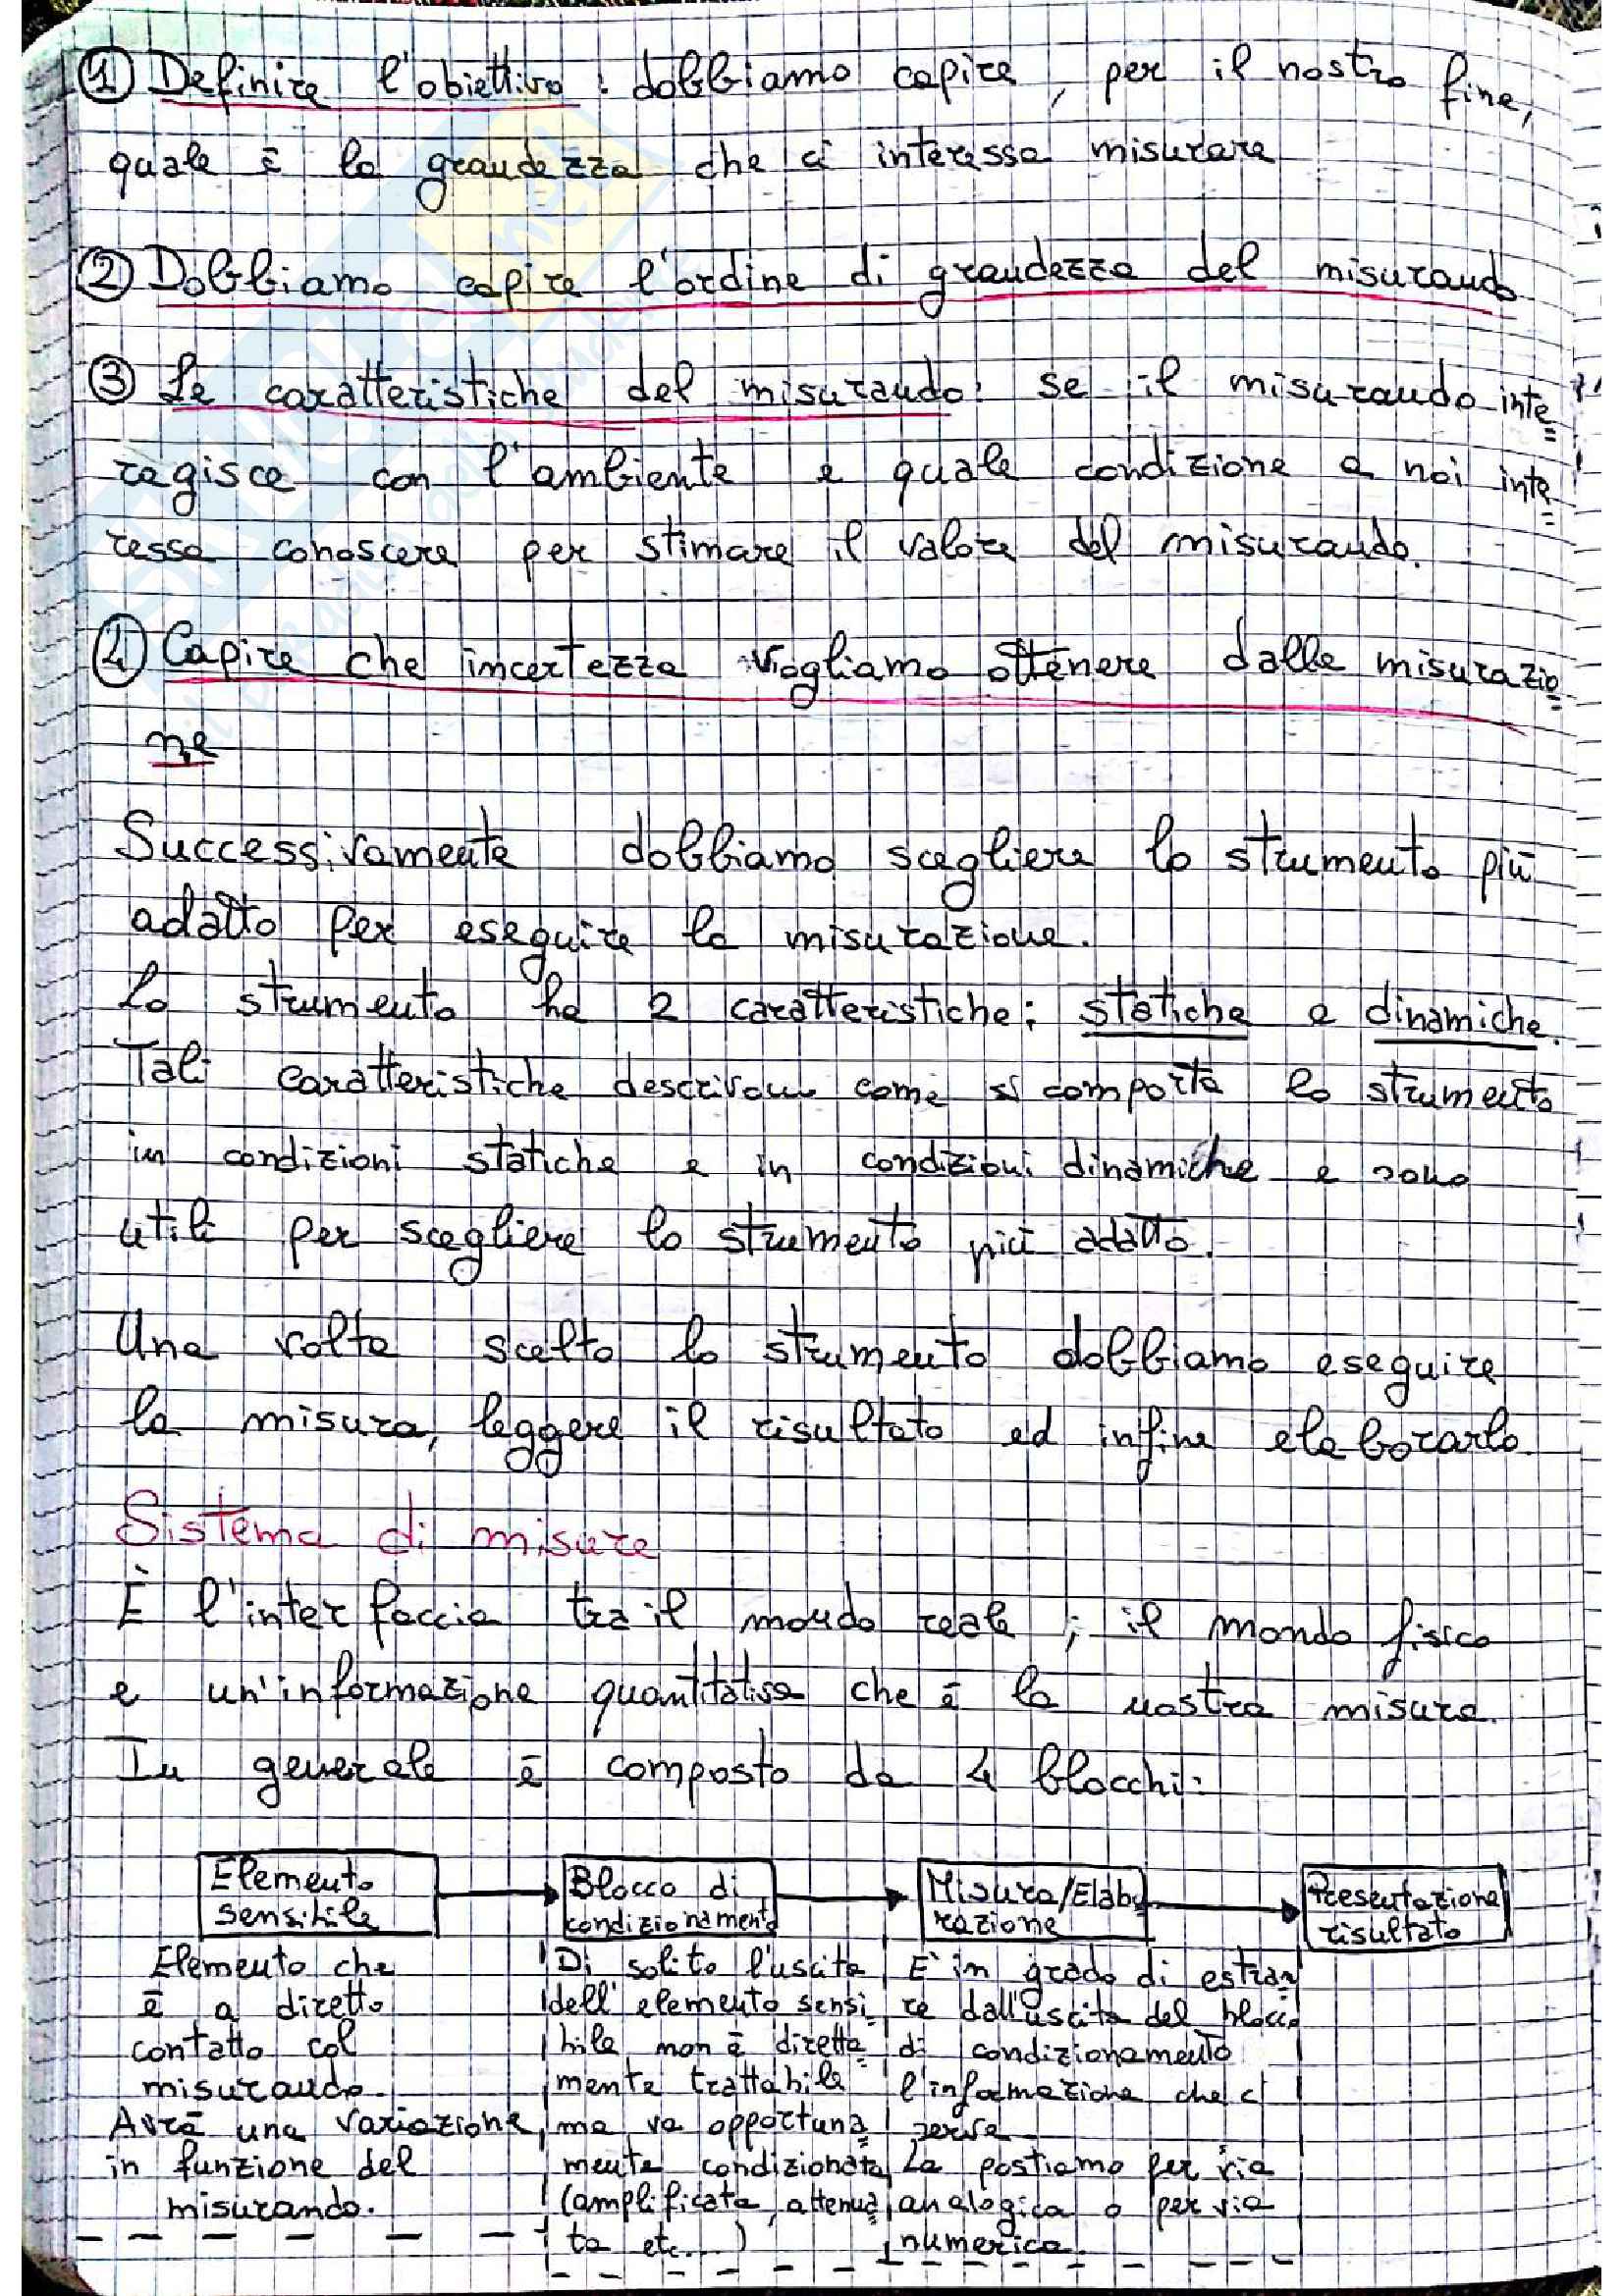 ① Definire l'obiettivo: dobbiamo capire, per il nostro fine,
quale è la grandezza che ci interessa misurare
② Dobbiamo capire l'ordine di grandezza del misurando
③ Le caratteristiche del misurando: se il misurando inte=
ragisce con l'ambiente e quale condizione a noi inte=
ressa conoscere per stimare il valore del misurando.
④ Capire che incertezza vogliamo ottenere dalla misurazio=
ne
Successivamente dobbiamo scegliere lo strumento più
adatto per eseguire la misurazione.
Lo strumento ha 2 caratteristiche: statiche e dinamiche.
Tali caratteristiche descrivono come si comporta lo strumento
in condizioni statiche e in condizioni dinamiche e sono
utili per scegliere lo strumento più adatto.
Una volta scelto lo strumento dobbiamo eseguire
la misura, leggere il risultato ed infine elaborarlo.
Sistema di misura
È l'interfaccia tra il mondo reale; il mondo fisico
e un'informazione quantitativa che è la nostra misura.
In generale è composto da 4 blocchi:
Elemento
sensibile
Blocco di
condizionamento
Misura/Elabo=
razione
Presentazione
risultato
Elemento che
è a diretto
contatto col
misurando.
Avrà una variazione
in funzione del
misurando.
Di solito l'uscita
dell'elemento sensi
bile non è diretta=
mente trattabile
ma va opportuna=
mente condizionata
(amplificata, attenua=
ta etc...)
E' in grado di estrar
re dall'uscita del blocco
di condizionamento
l'informazione che ci
serve
La postiamo per via
analogica o per via
numerica.